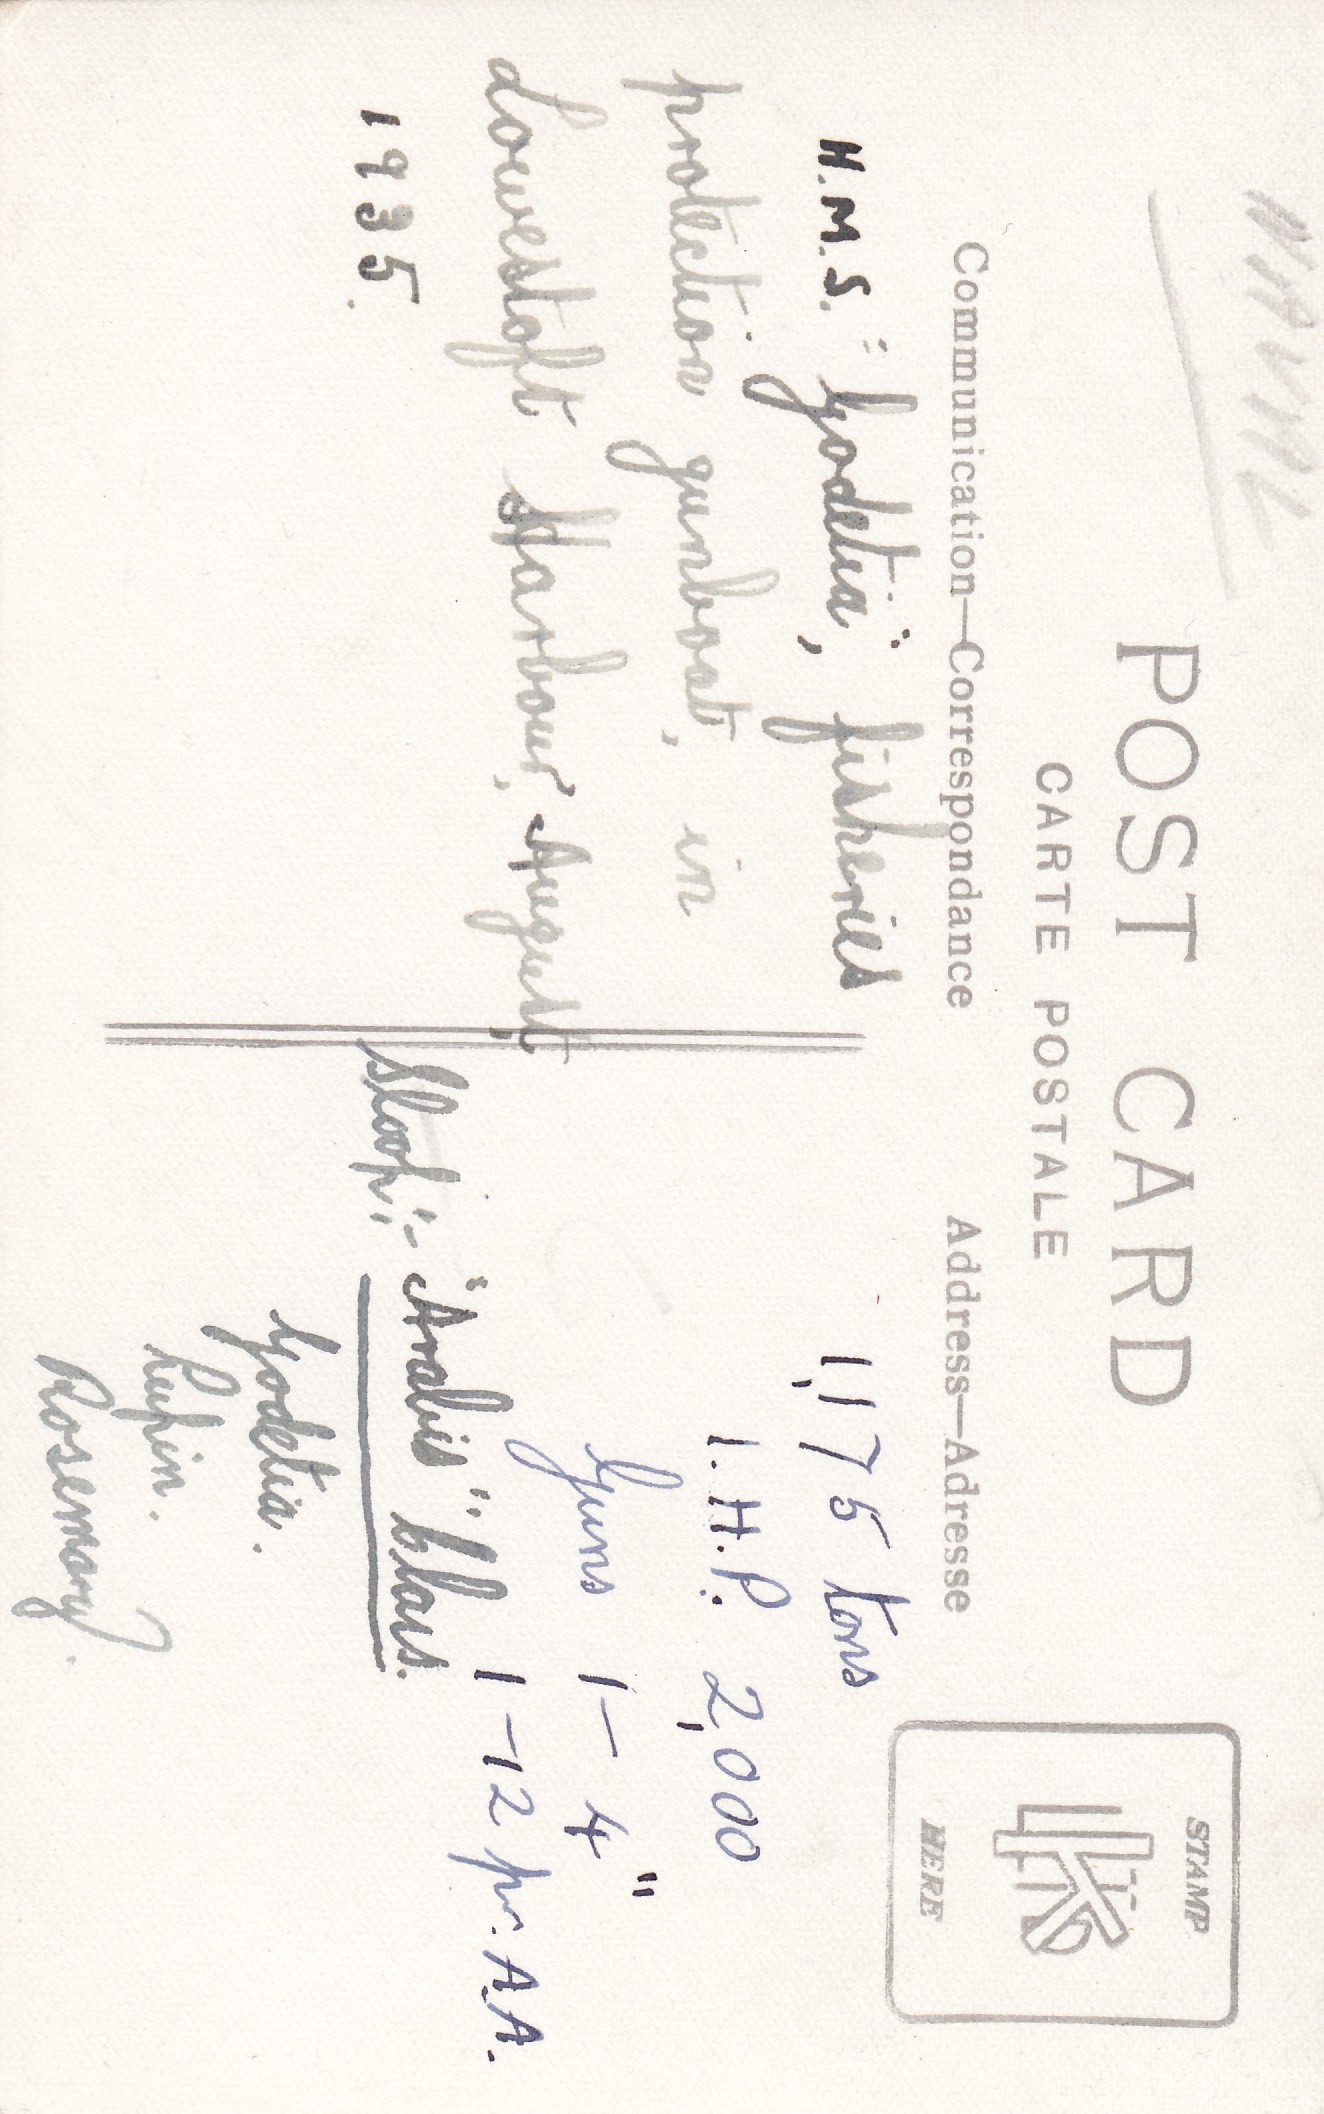 NAVAL
POST CARD
CARTE POSTALE
Communication—Correspondance
Address—Adresse
STAMP
HERE
H.M.S. "Godetia", fisheries
protection gunboat, in
Lowestoft Harbour, August
1935.
1,175 tons
I.H.P. 2,000
Guns 1-4"
1-12 pr. A.A.
Sloop:- "Arabis" class.
Godetia.
Lupin.
Rosemary.